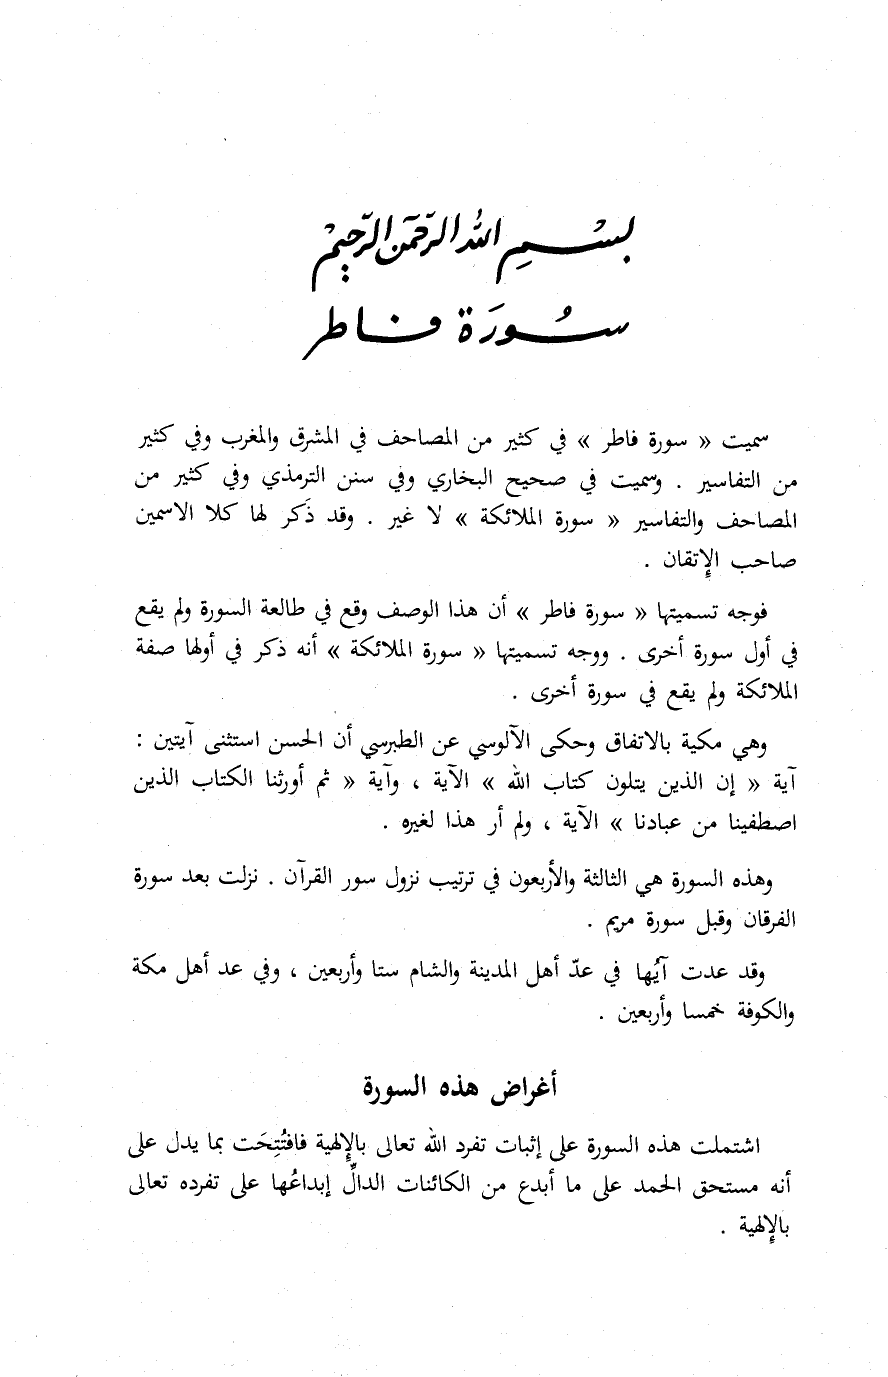 بسم الله الرحمن الرحيم
سورة فاطر
سميت « سورة فاطر » في كثير من المصاحف في المشرق والمغرب وفي كثير
من التفاسير . وسميت في صحيح البخاري وفي سنن الترمذي وفي كثير من
المصاحف والتفاسير « سورة الملائكة » لا غير . وقد ذَكر لها كلا الاسمين
صاحب الإِتقان .
فوجه تسميتها « سورة فاطر » أن هذا الوصف وقع في طالعة السورة ولم يقع
في أول سورة أخرى . ووجه تسميتها « سورة الملائكة » أنه ذكر في أولها صفة
الملائكة ولم يقع في سورة أخرى .
وهي مكية بالاتفاق وحكى الآلوسي عن الطبرسي أن الحسن استثنى آيتين :
آية « إن الذين يتلون كتاب الله » الآية ، وآية « ثم أورثنا الكتاب الذين
اصطفينا من عبادنا » الآية ، ولم أر هذا لغيره .
وهذه السورة هي الثالثة والأربعون في ترتيب نزول سور القرآن . نزلت بعد سورة
الفرقان وقبل سورة مريم .
وقد عدت آيُها في عدّ أهل المدينة والشام ستا وأربعين ، وفي عد أهل مكة
والكوفة خمسا وأربعين .
أغراض هذه السورة
اشتملت هذه السورة على إثبات تفرد الله تعالى بالإِلهية فافتُتِحَت بما يدل على
أنه مستحق الحمد على ما أبدع من الكائنات الدالِّ إبداعُها على تفرده تعالى
بالإِلهية .